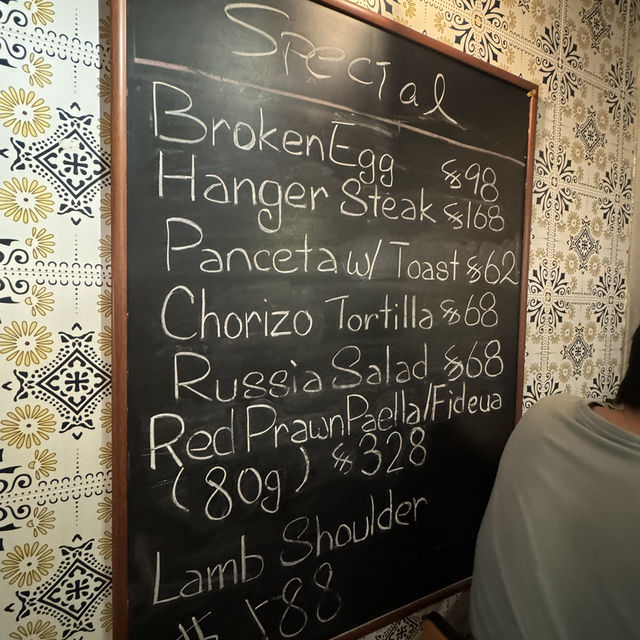 Special
Broken Egg $98
Hanger Steak $168
Panceta w/ Toast $62
Chorizo Tortilla $68
Russia Salad $68
Red Prawn Paella/Fideua
(80g) $328
Lamb Shoulder
$ 188